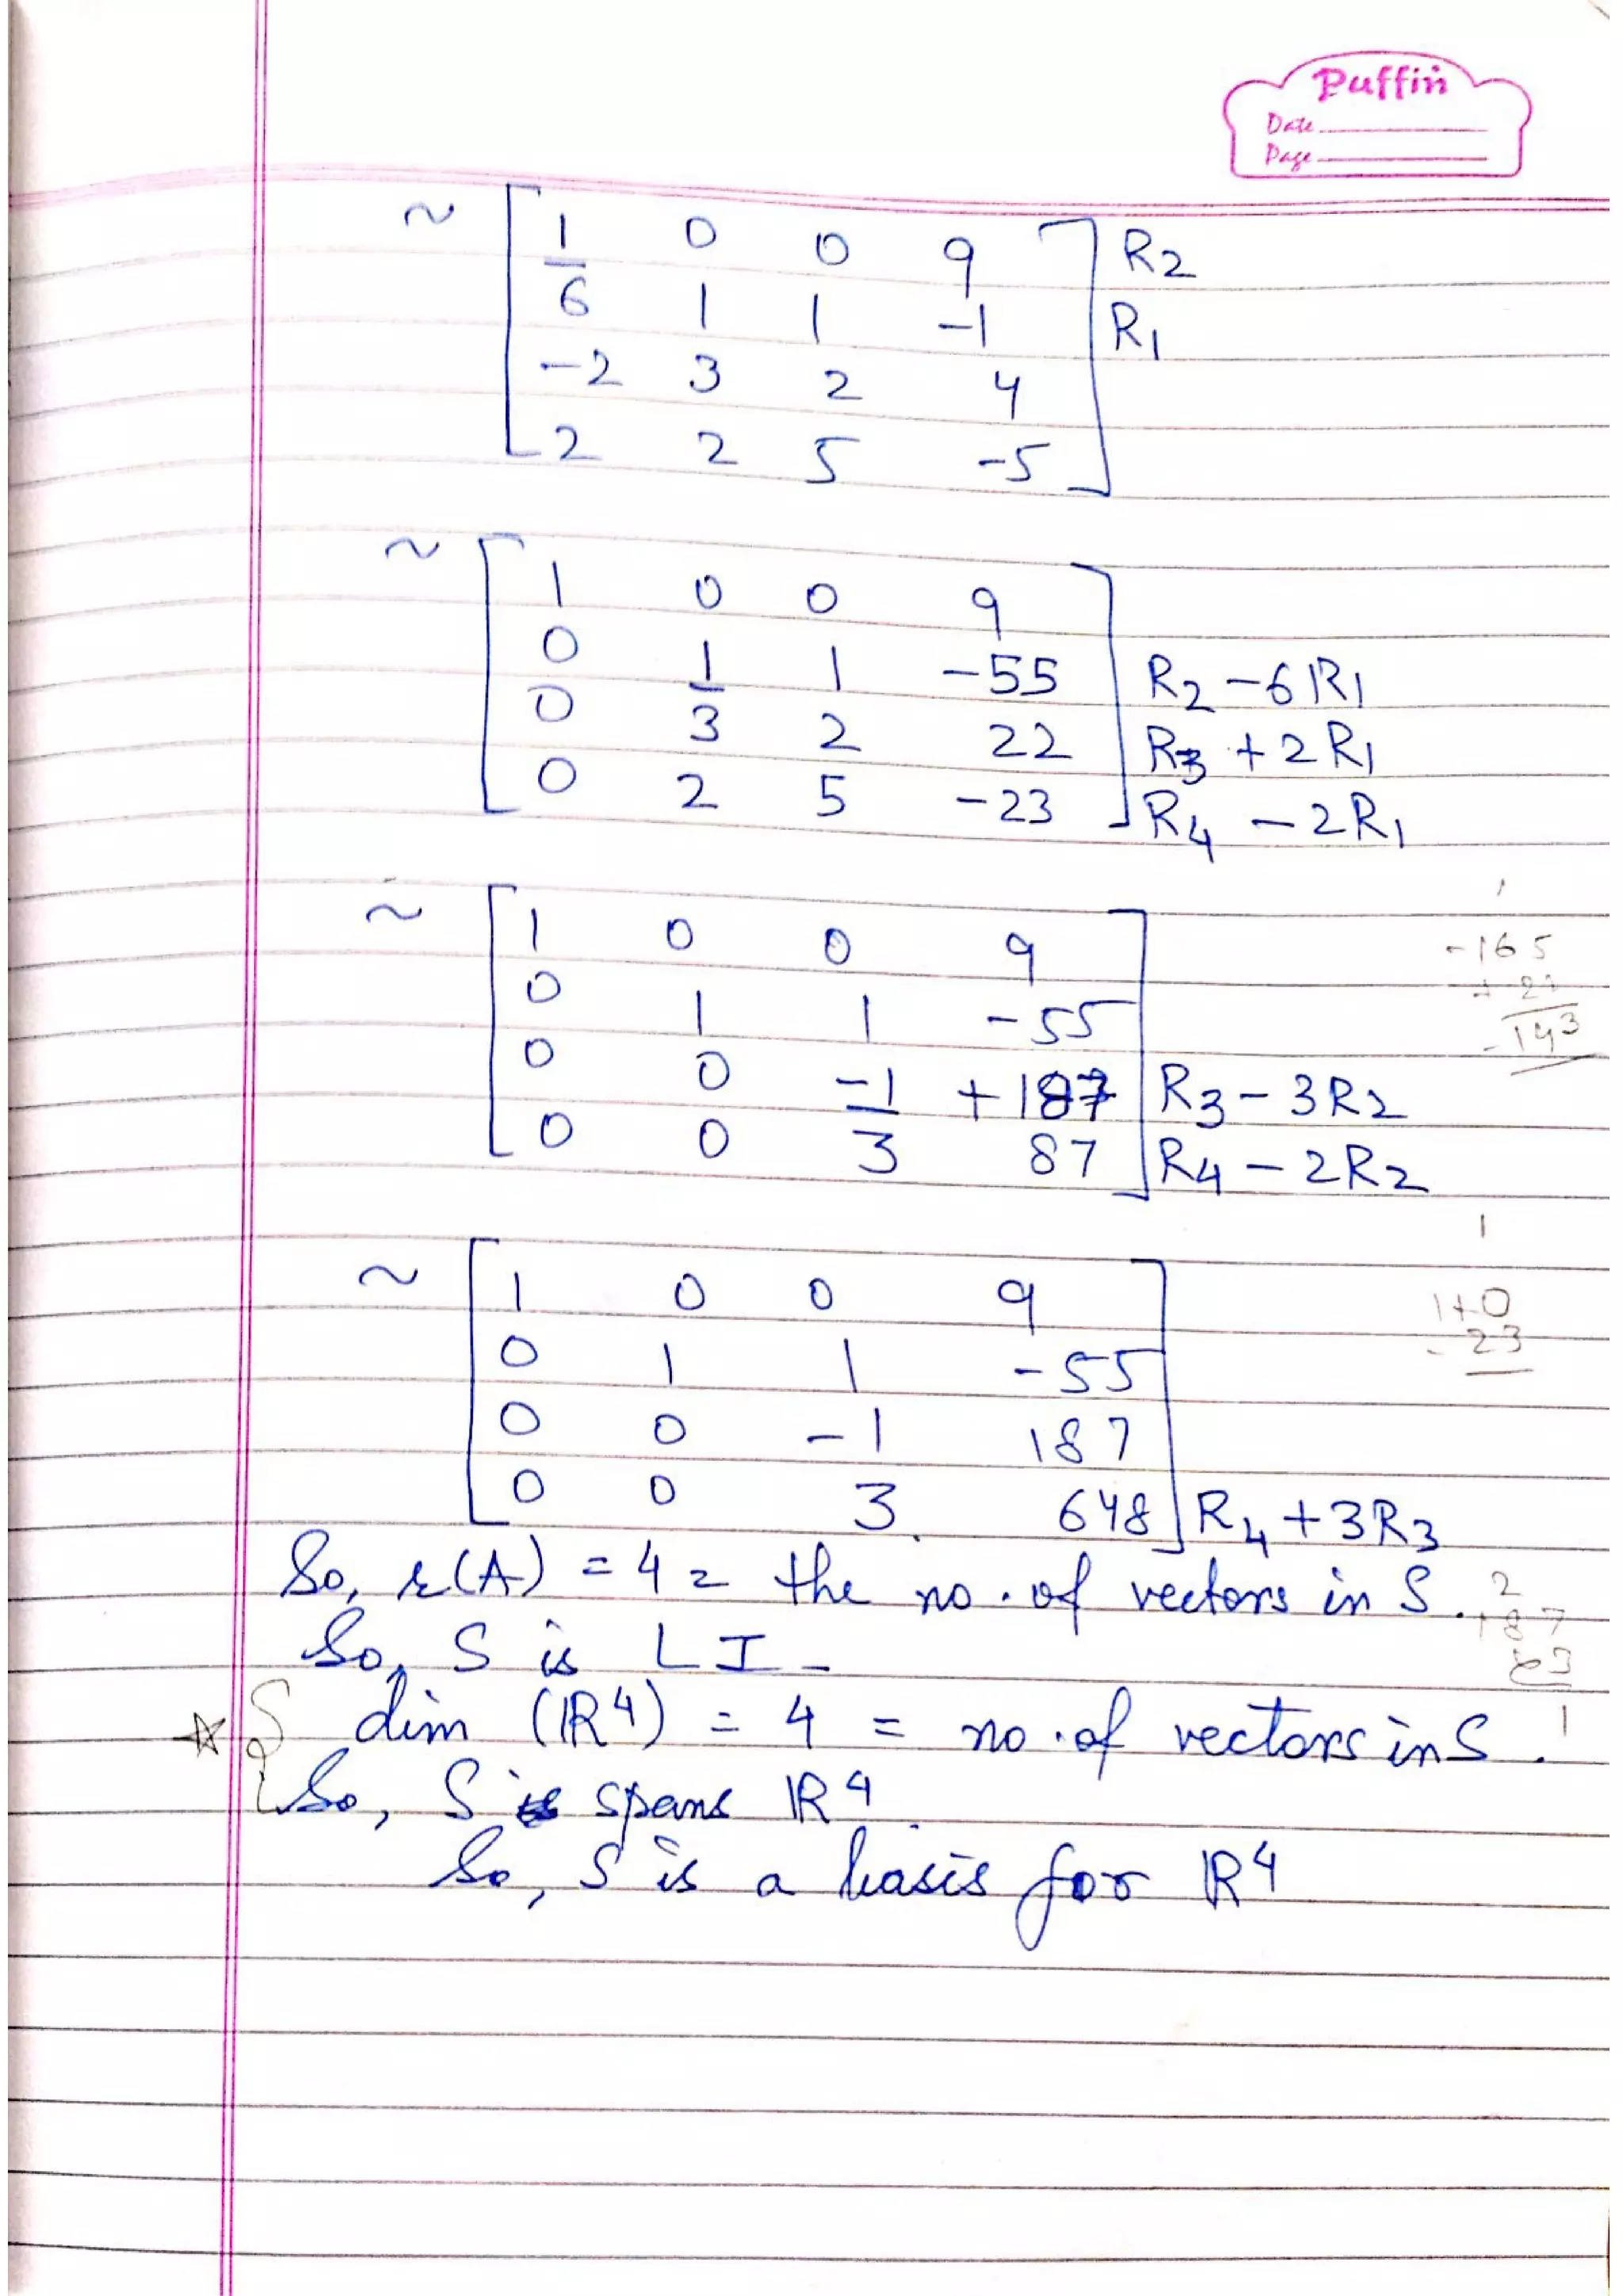 Puffin
Date
Page
~ [ 1 0 0 9 ] R2
6 1 1 -1 R1
-2 3 2 4
2 2 5 -5
~ [ 1 0 0 9 ]
0 1 1 -55 R2 - 6R1
0 3 2 22 R3 + 2R1
0 2 5 -23 R4 - 2R1
~ [ 1 0 0 9 ]
0 1 1 -55
0 0 -1 +187 R3 - 3R2
0 0 3 87 R4 - 2R2
-165
-143
~ [ 1 0 0 9 ]
0 1 1 -55
0 0 -1 187
0 0 3 648 R4 + 3R3
110
- 23
So, r(A) = 4 = the no. of vectors in S.
So, S is LI -
dim (ℝ4) = 4 = no. of vectors in S.
So, S spans ℝ4.
So, S is a basis for ℝ4
2
187
x3